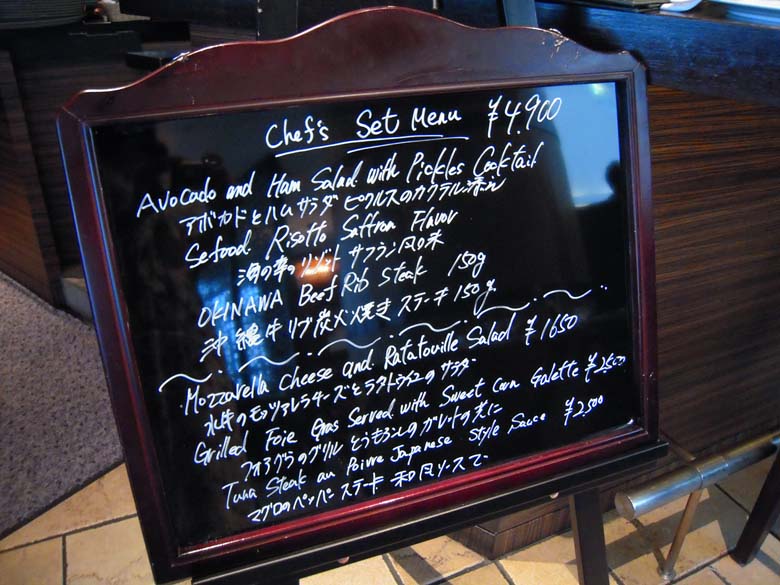 Chef's Set Menu ¥4,900
Avocado and Ham Salad with Pickles Cocktail
アボカドとハムサラダ ピクルスのカクテル添え
Sefood Risotto Saffron Flavor
海の幸のリゾット サフラン風味
OKINAWA Beef Rib Steak 150g
沖縄牛リブ炭火焼き ステーキ 150g
Mozzarella cheese and Ratatouille Salad ¥1650
水牛のモッツァレラチーズとラタトゥイユのサラダ
Grilled Foie Gras Served with Sweet Corn Galette ¥2500
フォアグラのグリル とうもろこしのガレットと共に
Tuna Steak au Poivre Japanese Style Sauce ¥2500
マグロのペッパーステーキ 和風ソースで